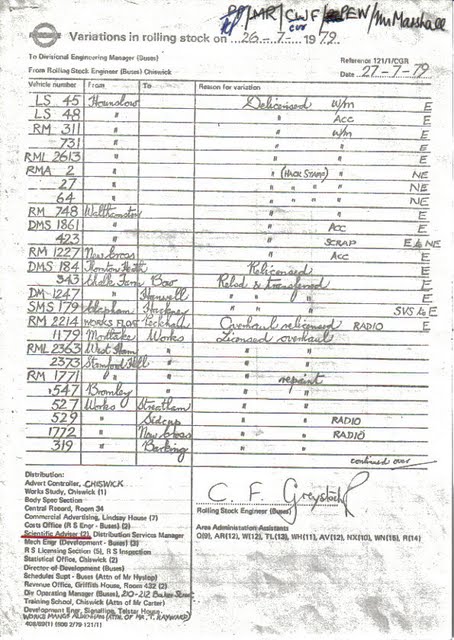 PP/MR/CWF/PEW/Mr Marshall
Variations in rolling stock on 26 - 7 - 1979
To Divisional Engineering Manager (Buses)
Reference 121/1/CGR
From Rolling Stock Engineer (Buses) Chiswick
Date 27-7-79
Vehicle number From To Reason for variation
LS 45 Hounslow Delicensed w/m E
LS 48 " " Acc E
RM 311 " " w/m E
731 " " " E
RML 2613 " " " E
RMA 2 " " (HACK STAMP) " NE
27 " " " " " NE
64 " " " " " NE
RM 748 Walthamstow " " E
DMS 1861 " " Acc E
423 " " SCRAP E & NE
RM 1227 New Cross " Acc E
DMS 184 Thornton Heath Relicensed E
343 Chalk Farm Bow Relsd & transferred E
DM 1247 " Hanwell " " " E
SMS 179 Clapham Hackney " " " SVS to E
RM 2214 WORKS FLOAT Peckham Overhaul relicensed RADIO E
1179 Mortlake Works Licensed overhaul
RML 2363 West Ham " " "
2373 Stamford Hill " " "
RM 1771 " " " repaint
547 Bromley " " "
527 Works Streatham " "
529 " Sidcup " " RADIO
1772 " New Cross " " RADIO
319 " Barking " "
continued over
Distribution:
Advert Controller, CHISWICK
Works Study, Chiswick (1)
Body Spec Section
Central Record, Room 34
Commercial Advertising, Lindsay House (7)
Costs Office (R S Engr - Buses) (2)
Scientific Adviser (2), Distribution Services Manager
Mech Engr (Development - Buses) (3)
R S Licensing Section (5), R S Inspection
Statistical Office, Chiswick (2)
Director of Development (Buses)
Schedules Supt - Buses (Attn of Mr Hyslop)
Revenue Office, Griffith House, Room 432 (2)
Div Operating Manager (Buses), 210-212 Baker Street
Training School, Chiswick (Attn of Mr Carter)
Development Engr, Signalling, Telstar House
WORKS MANGR ALDENHAM (ATTN OF MR. T. RAYWARD)
408/69(1) (900 2779 121/1)
C. F. Greystock
Rolling Stock Engineer (Buses)
Area Administration Assistants
Q(9), AR(12), W(12), TL(13), WH(11), AV(12), NX(10), WN(15), R(14)